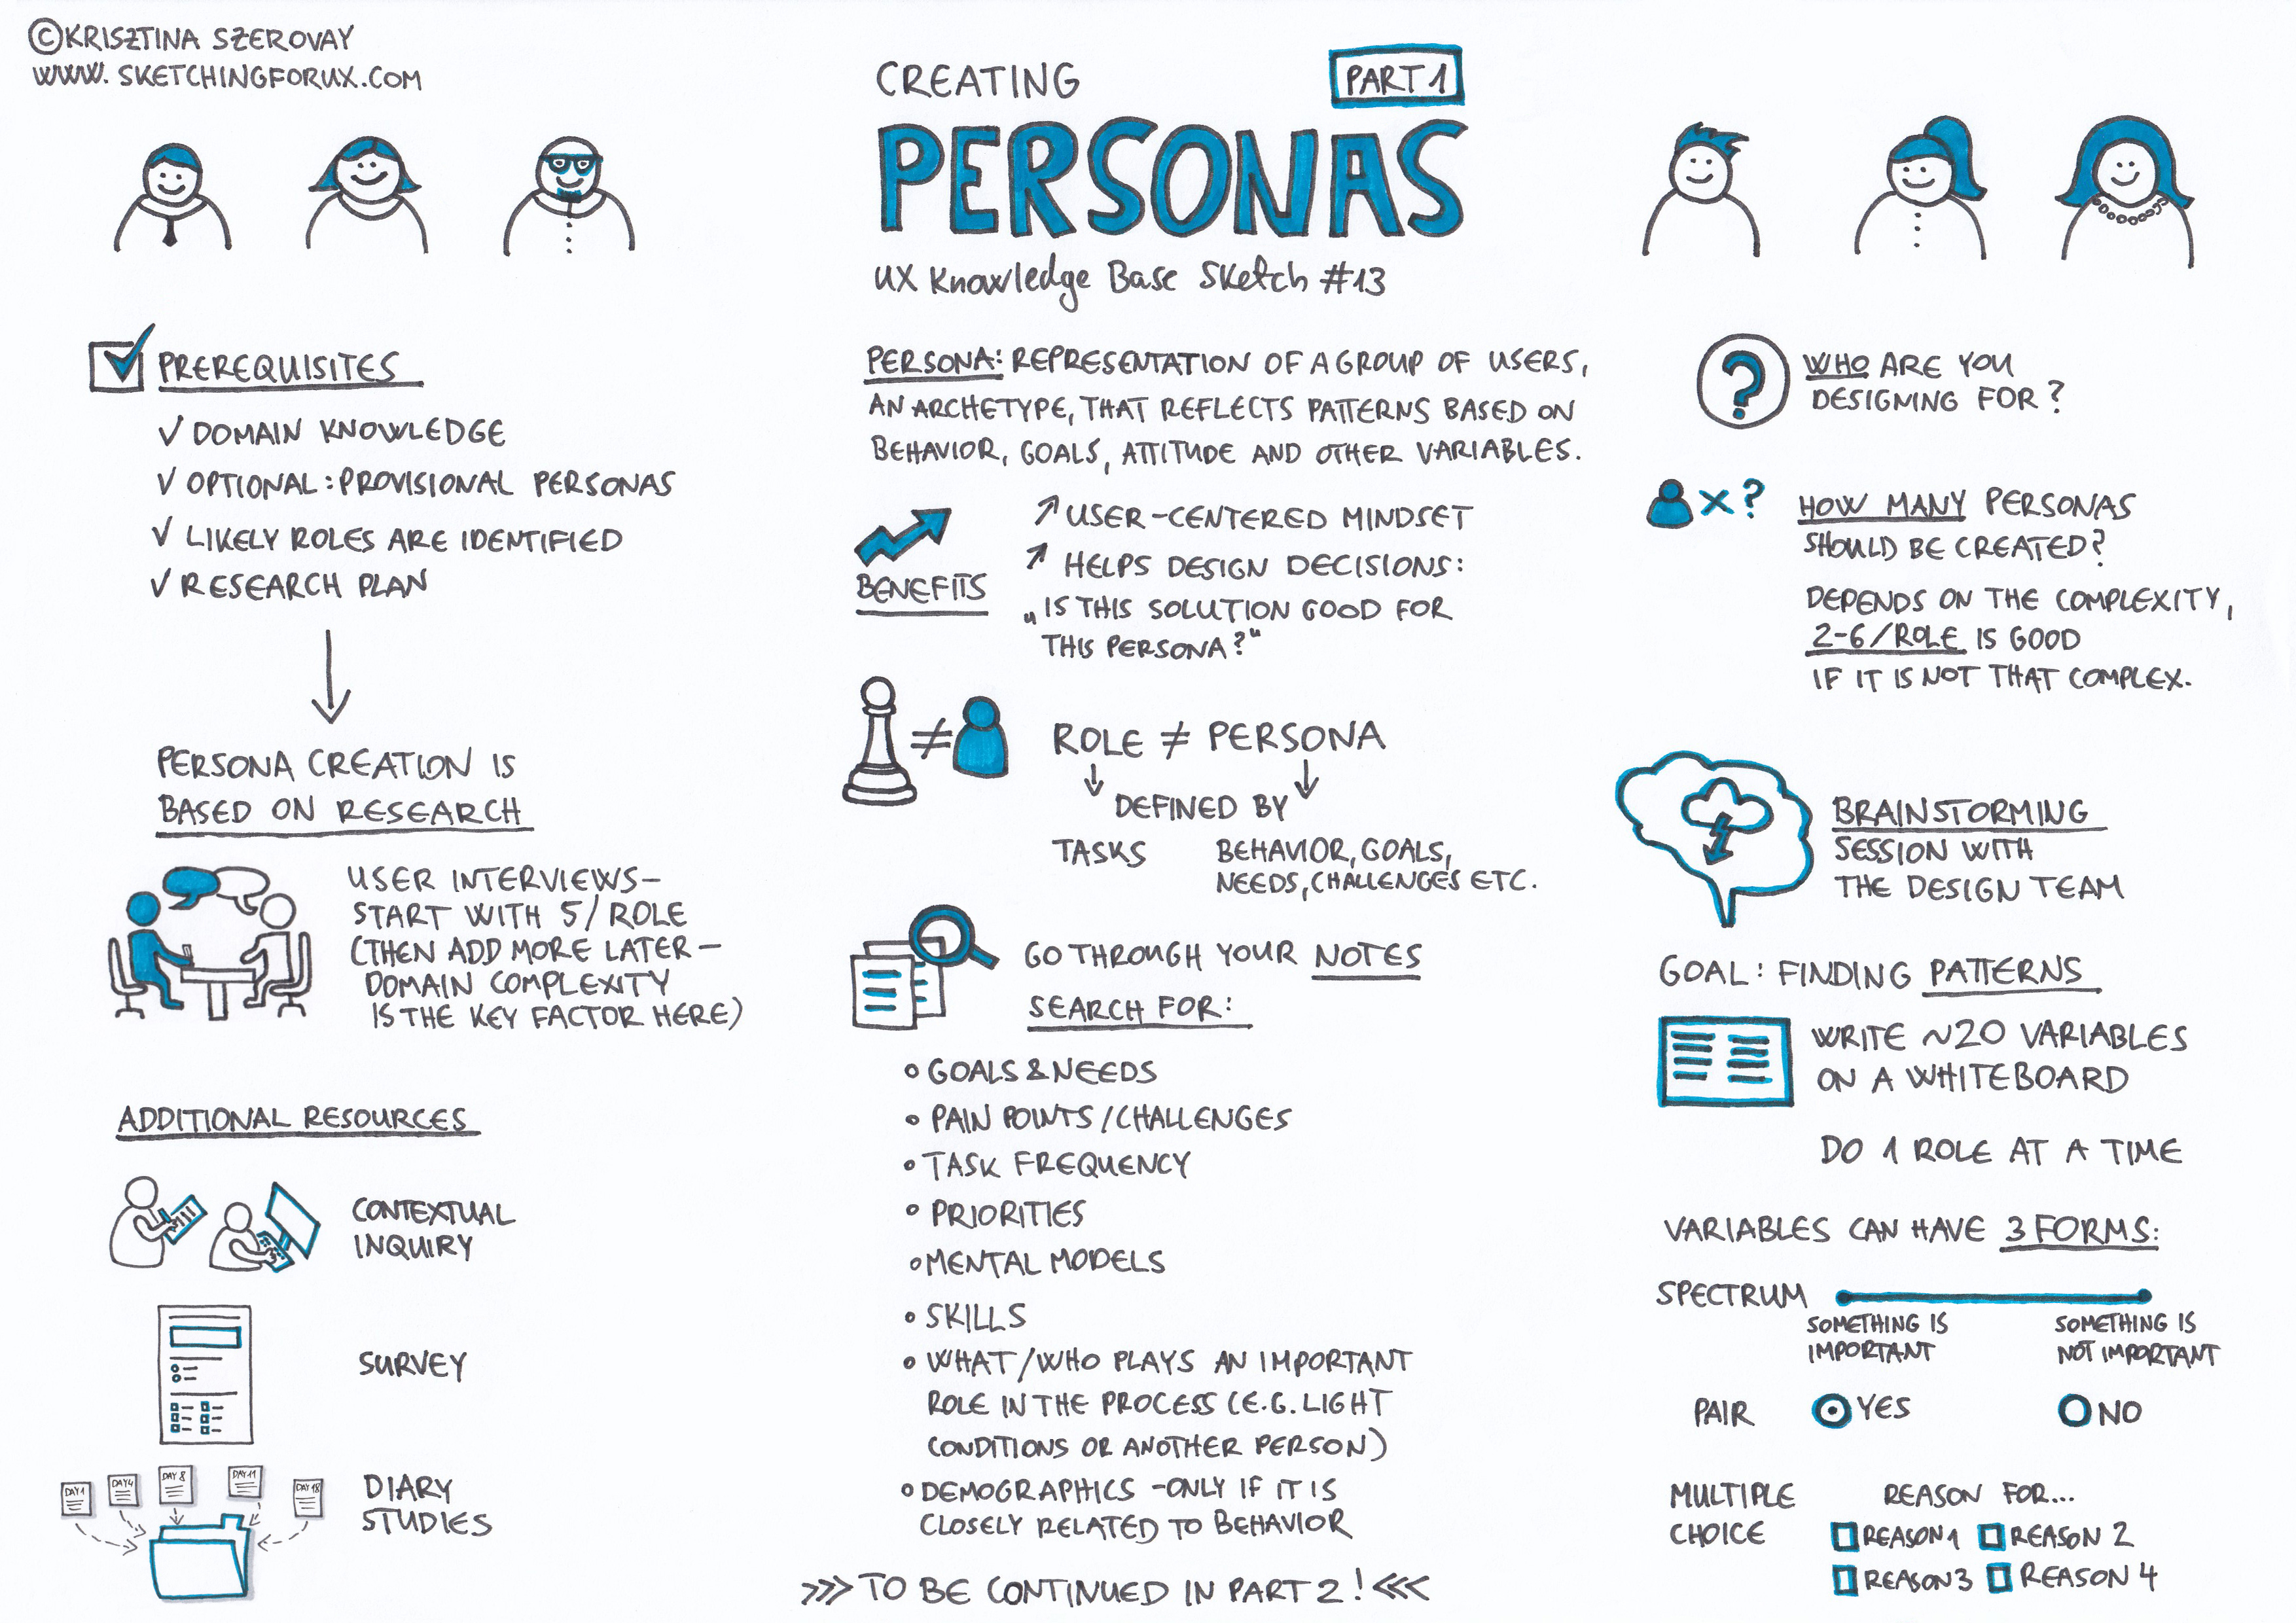 ©KRISZTINA SZEROVAY
WWW.SKETCHINGFORUX.COM
CREATING
PART 1
PERSONAS
UX Knowledge Base Sketch #13
PREREQUISITES
√ DOMAIN KNOWLEDGE
√ OPTIONAL: PROVISIONAL PERSONAS
√ LIKELY ROLES ARE IDENTIFIED
√ RESEARCH PLAN
PERSONA CREATION IS
BASED ON RESEARCH
USER INTERVIEWS-
START WITH 5/ROLE
(THEN ADD MORE LATER-
DOMAIN COMPLEXITY
IS THE KEY FACTOR HERE)
ADDITIONAL RESOURCES
CONTEXTUAL
INQUIRY
SURVEY
DAY 1
DAY 4
DAY 8
DAY 11
DAY 18
DIARY
STUDIES
PERSONA: REPRESENTATION OF A GROUP OF USERS,
AN ARCHETYPE, THAT REFLECTS PATTERNS BASED ON
BEHAVIOR, GOALS, ATTITUDE AND OTHER VARIABLES.
BENEFITS
↗ USER-CENTERED MINDSET
↗ HELPS DESIGN DECISIONS:
„IS THIS SOLUTION GOOD FOR
THIS PERSONA?"
≠
ROLE ≠ PERSONA
DEFINED BY
TASKS
BEHAVIOR, GOALS,
NEEDS, CHALLENGES ETC.
GO THROUGH YOUR NOTES
SEARCH FOR:
o GOALS & NEEDS
o PAIN POINTS/CHALLENGES
o TASK FREQUENCY
o PRIORITIES
o MENTAL MODELS
o SKILLS
o WHAT/WHO PLAYS AN IMPORTANT
ROLE IN THE PROCESS (E.G. LIGHT
CONDITIONS OR ANOTHER PERSON)
o DEMOGRAPHICS -ONLY IF IT IS
CLOSELY RELATED TO BEHAVIOR
>>> TO BE CONTINUED IN PART 2! <<<
?
WHO ARE YOU
DESIGNING FOR?
x?
HOW MANY PERSONAS
SHOULD BE CREATED?
DEPENDS ON THE COMPLEXITY,
2-6/ROLE IS GOOD
IF IT IS NOT THAT COMPLEX.
BRAINSTORMING
SESSION WITH
THE DESIGN TEAM
GOAL: FINDING PATTERNS
WRITE ~20 VARIABLES
ON A WHITEBOARD
DO 1 ROLE AT A TIME
VARIABLES CAN HAVE 3 FORMS:
SPECTRUM
SOMETHING IS
IMPORTANT
SOMETHING IS
NOT IMPORTANT
PAIR
YES
NO
MULTIPLE
CHOICE
REASON FOR...
REASON 1
REASON 2
REASON 3
REASON 4